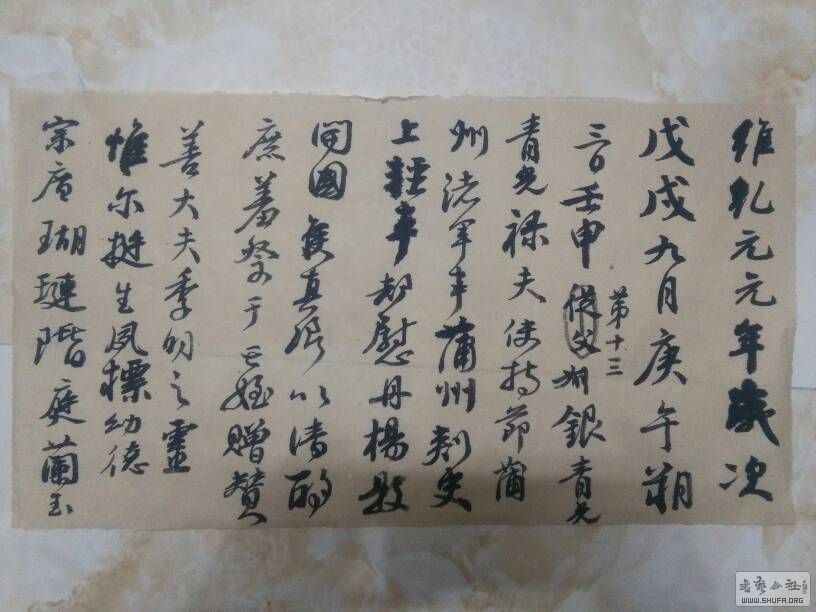 維乾元元年歲次
戊戌九月庚午朔
第十三
三日壬申從父叔銀青光
青光祿夫使持節蒲
州諸軍事蒲州刺史
上輕車都慰丹楊縣
開國侯真卿以清酌
庶羞祭于亡姪贈贊
善大夫季明之靈
惟尔挺生夙標幼德
宗廟瑚璉階庭蘭玉
書藝公社
WWW.SHUFA.ORG